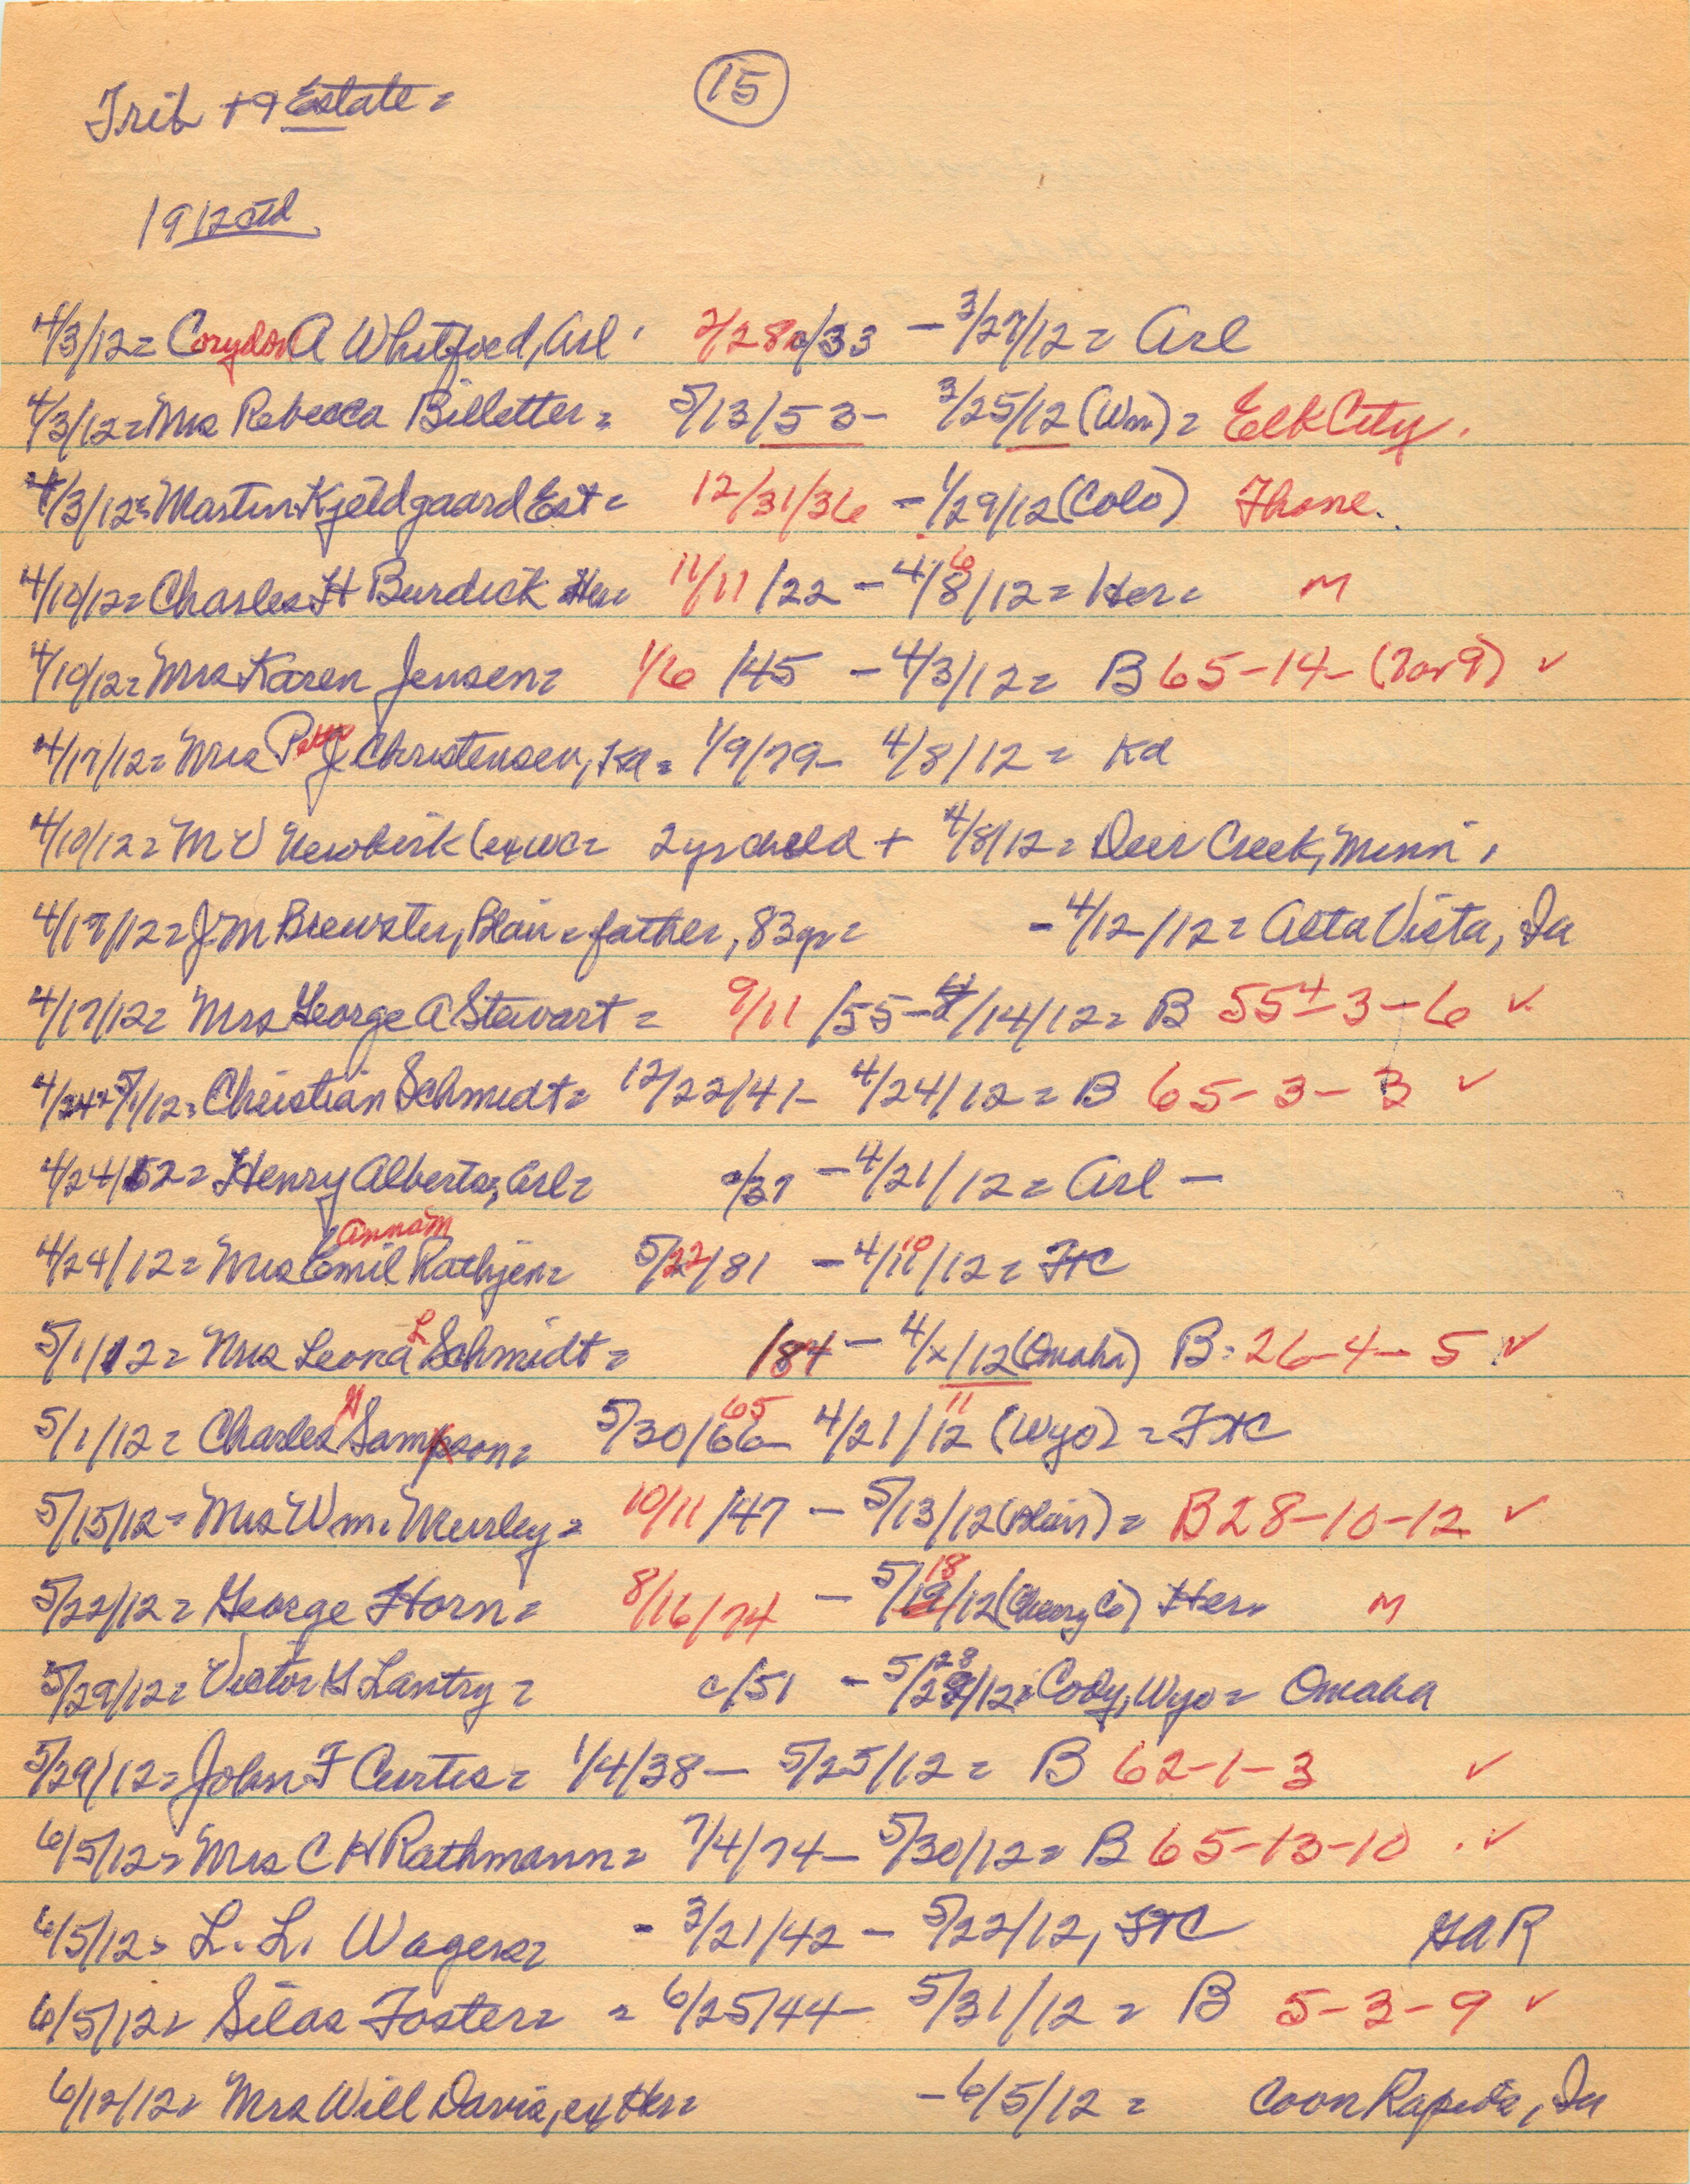 Trib + 9 Estate =
15
1912 std
4/3/12 = Corydon A Whitford, Arl. 2/28 c/33 - 3/27/12 = Arl
4/3/12 = Mrs Rebecca Billetter = 5/13/53 - 3/25/12 (Wm) = Elk City.
4/3/12 = Martin Kjeldgaard Est = 12/31/36 - 1/29/12 (Colo) Fhone.
4/10/12 = Charles H Burdick Her = 11/11/22 - 4/8 6/12 = Her = M
4/10/12 = Mrs Karen Jensen = 1/6/45 - 4/3/12 = B 65-14- (7 or 9) ✓
4/17/12 = Mrs Peter J Christensen, Ka = 1/9/79 - 4/8/12 = Ka
4/10/12 = M V Newkirk (exwc = 2 yr child + 4/8/12 = Deer Creek, Minn.
4/17/12 = J M Brewster, Blair = father, 83 yr = - 4/12/12 = Alta Vista, Ia
4/17/12 = Mrs George A Stewart = 9/11/55 - 4/14/12 = B 55 4-3-6 ✓
4/24 + 5/1/12 = Christian Schmidt = 12/22/41 - 4/24/12 = B 65-3-3 ✓
4/24/12 = Henry Alberts, Arl = c/37 - 4/21/12 = Arl -
4/24/12 = Mrs Emil Anna M Rathjen = 5/22/81 - 4/11 10/12 = FtC
5/1/12 = Mrs Leona L Schmidt = /84 - 4/x/12 (Omaha) B = 26-4-5 ✓
5/1/12 = Charles H Sampson = 5/30/66 65 - 4/21/12 11 (Wyo) = FtC
5/15/12 = Mrs Wm. Murley = 10/11/47 - 5/13/12 (Blair) = B 28-10-12 ✓
5/22/12 = George Horn = 8/16/74 - 5/19 18/12 (Cherry Co) Her = M
5/29/12 = Victor H Lantry = c/51 - 5/28/12 = Cody, Wyo = Omaha
5/29/12 = John F Curtis = 1/4/38 - 5/25/12 = B 62-1-3 ✓
6/5/12 = Mrs C H Rathmann = 7/4/74 - 5/30/12 = B 65-13-10 ✓
6/5/12 = L. L. Wagers = - 3/21/42 - 5/22/12, FtC GAR
6/5/12 = Silas Foster = = 6/25/44 - 5/31/12 = B 5-3-9 ✓
6/12/12 = Mrs Will Davis, ex Her = - 6/5/12 = Coon Rapids, Ia